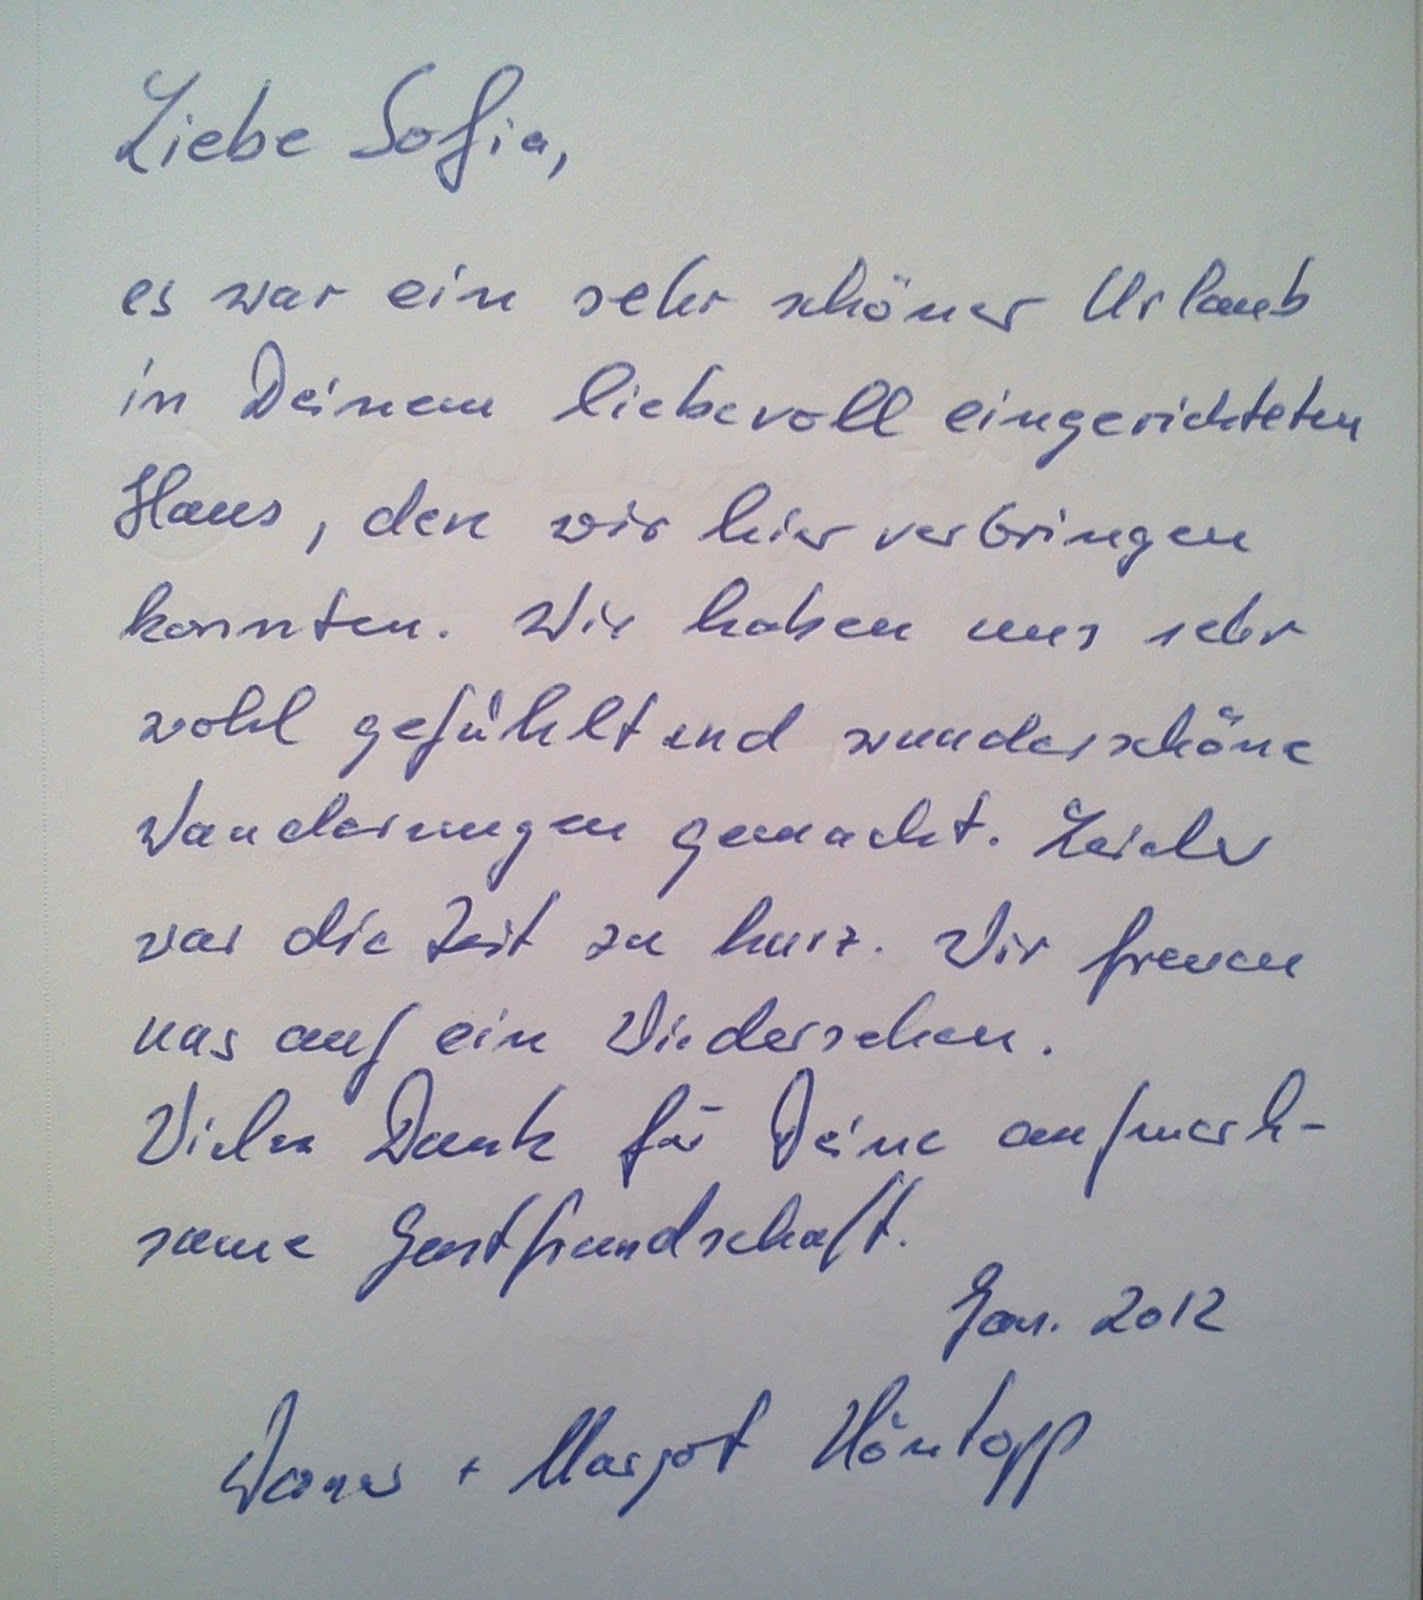 Liebe Sofia,
es war ein sehr schöner Urlaub
in Deinem liebevoll eingerichteten
Haus, den wir hier verbringen
konnten. Wir haben uns sehr
wohl gefühlt und wunderschöne
Wanderungen gemacht. Leider
war die Zeit zu kurz. Wir freuen
uns auf ein Wiedersehen.
Vielen Dank für Deine aufmerk-
same Gastfreundschaft.
Jan. 2012
Werner + Margot Höntopp